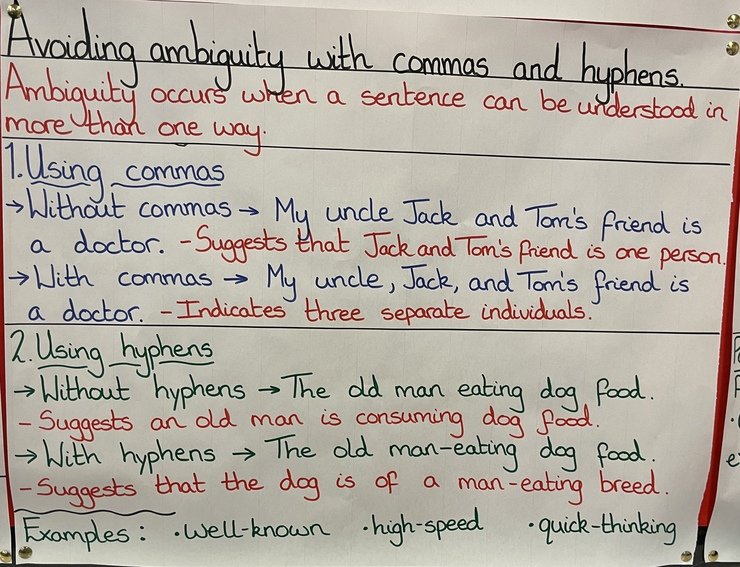 Avoiding ambiguity with commas and hyphens.
Ambiguity occurs when a sentence can be understood in
more than one way.
1. Using commas
→ Without commas → My uncle Jack and Tom's friend is
a doctor. - Suggests that Jack and Tom's friend is one person.
→ With commas → My uncle, Jack, and Tom's friend is
a doctor. - Indicates three separate individuals.
2. Using hyphens
→ Without hyphens → The old man eating dog food.
- Suggests an old man is consuming dog food.
→ With hyphens → The old man-eating dog food.
- Suggests that the dog is of a man-eating breed.
Examples: · well-known · high-speed · quick-thinking